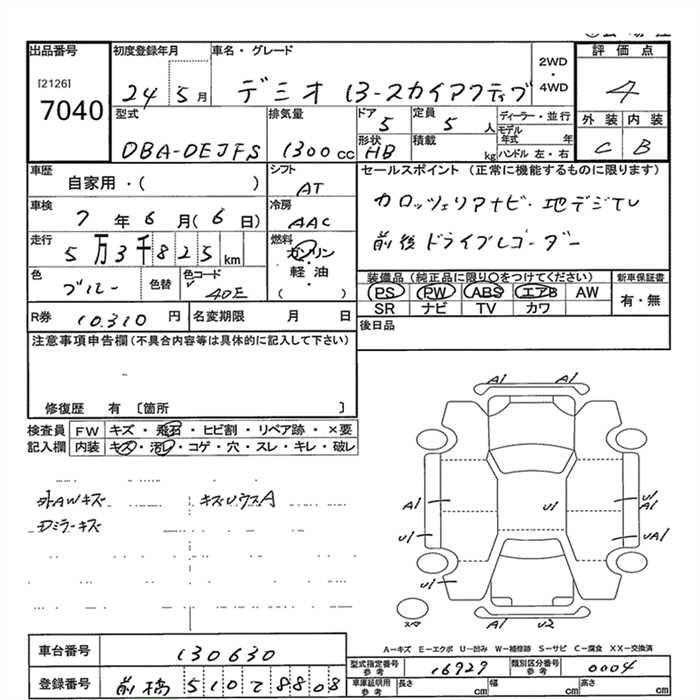 出品番号 初度登録年月 車名・グレード 2WD・4WD 評価点
[2126]
7040
24 5月 デミオ 13-スカイアクティブ 4
型式 排気量 ドア 定員 ディーラー・並行 外装 内装
DBA-DEJFS 1300cc 5 5人 モデル年式 年 C B
形状 積載 ハンドル 左・右
HB kg
車歴 シフト セールスポイント (正常に機能するものに限ります)
自家用・( ) AT
車検 冷房 カロッツェリアナビ・地デジTV
7年6月(6日) AAC
走行 燃料 前後ドライブレコーダー
5万3千825km ガソリン・軽油・( )
色 色替 色コード 装備品 (純正品に限り○をつけてください) 新車保証書
ブルー 40E PS PW ABS エアB AW 有・無
SR ナビ TV カワ
R券 10.310円 名変期限 月 日 後日品
注意事項申告欄 (不具合内容等は具体的に記入して下さい)
修復歴 有 〔箇所 〕
検査員記入欄 FW キズ・飛石・ヒビ割・リペア跡・×要
内装 キズ・汚レ・コゲ・穴・スレ・キレ・破レ
外AWキズ キズUウスA
ミラーキズ
A1 A1
A1 U1 U1 A1
U1 UA1
U1
スペ A1 U2
A-キズ E-エクボ U-凹み W-補修跡 S-サビ C-腐食 XX-交換済
車台番号 130630
型式指定番号 参考 16929 類別区分番号 参考 0004
登録番号 前橋 510て8808
車庫証明用 参考 長さ cm 幅 cm 高さ cm